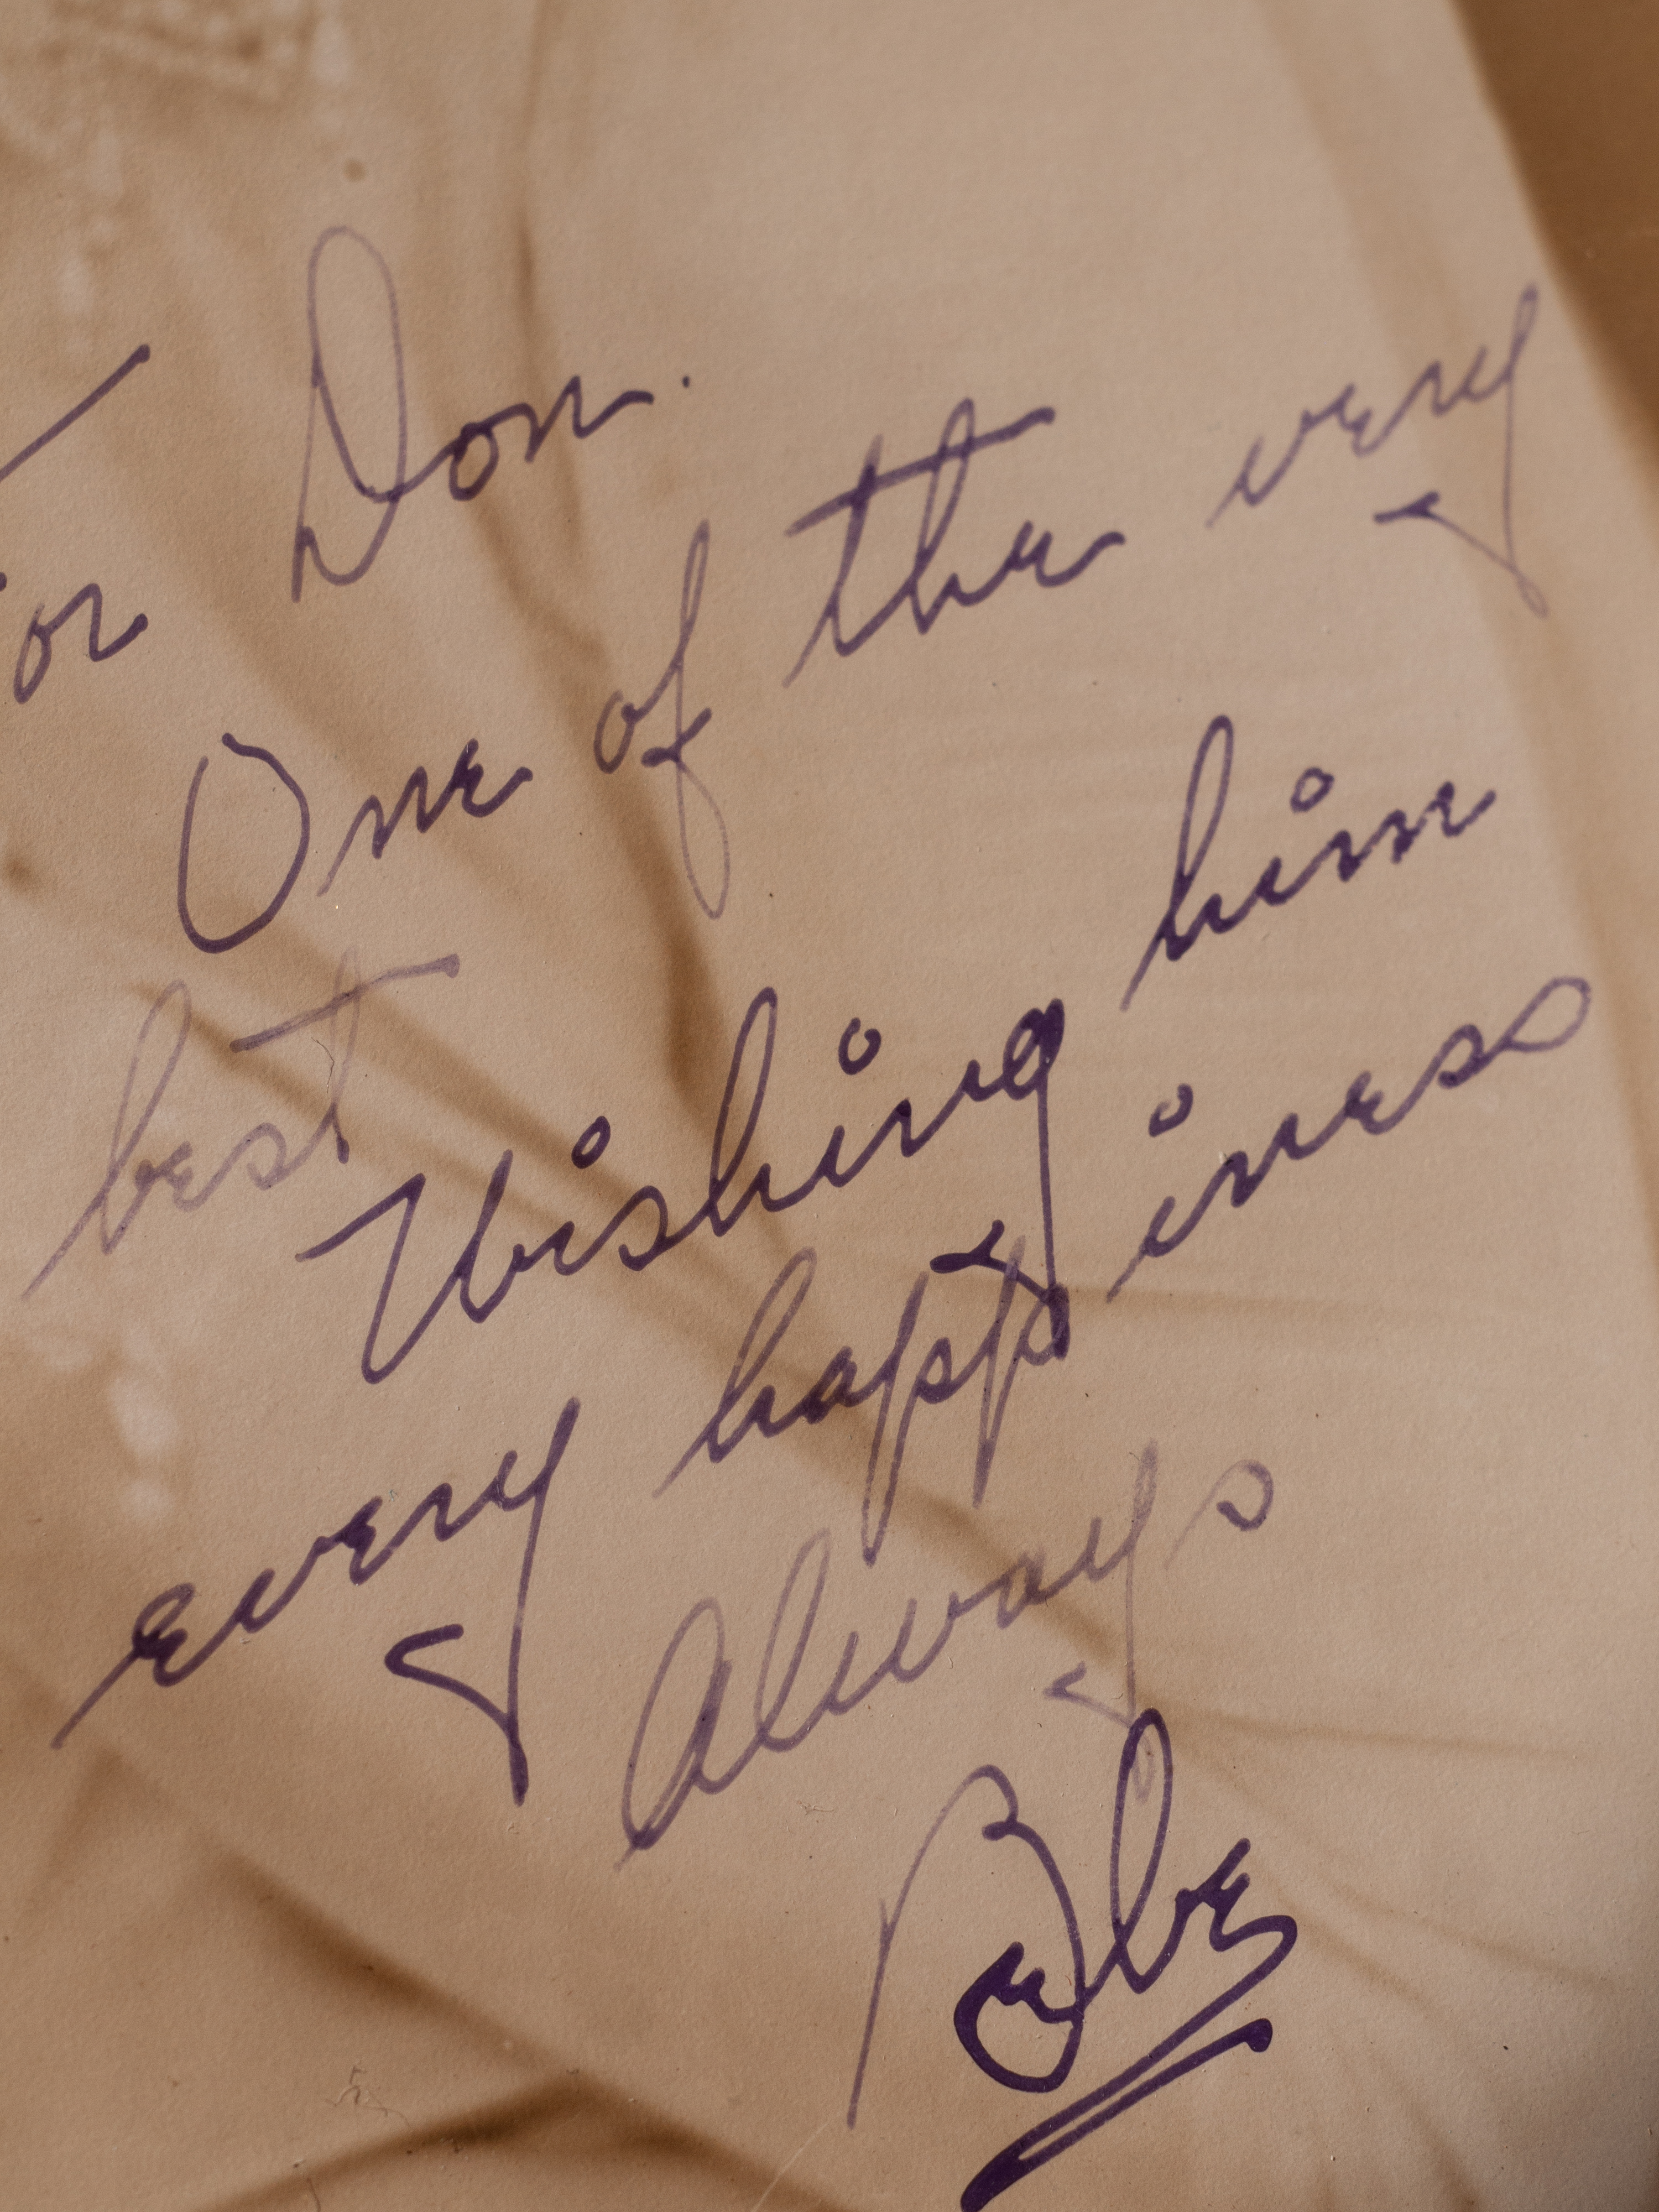 For Don.
One of the very
best
Wishing him
every happiness
Always
Bebe